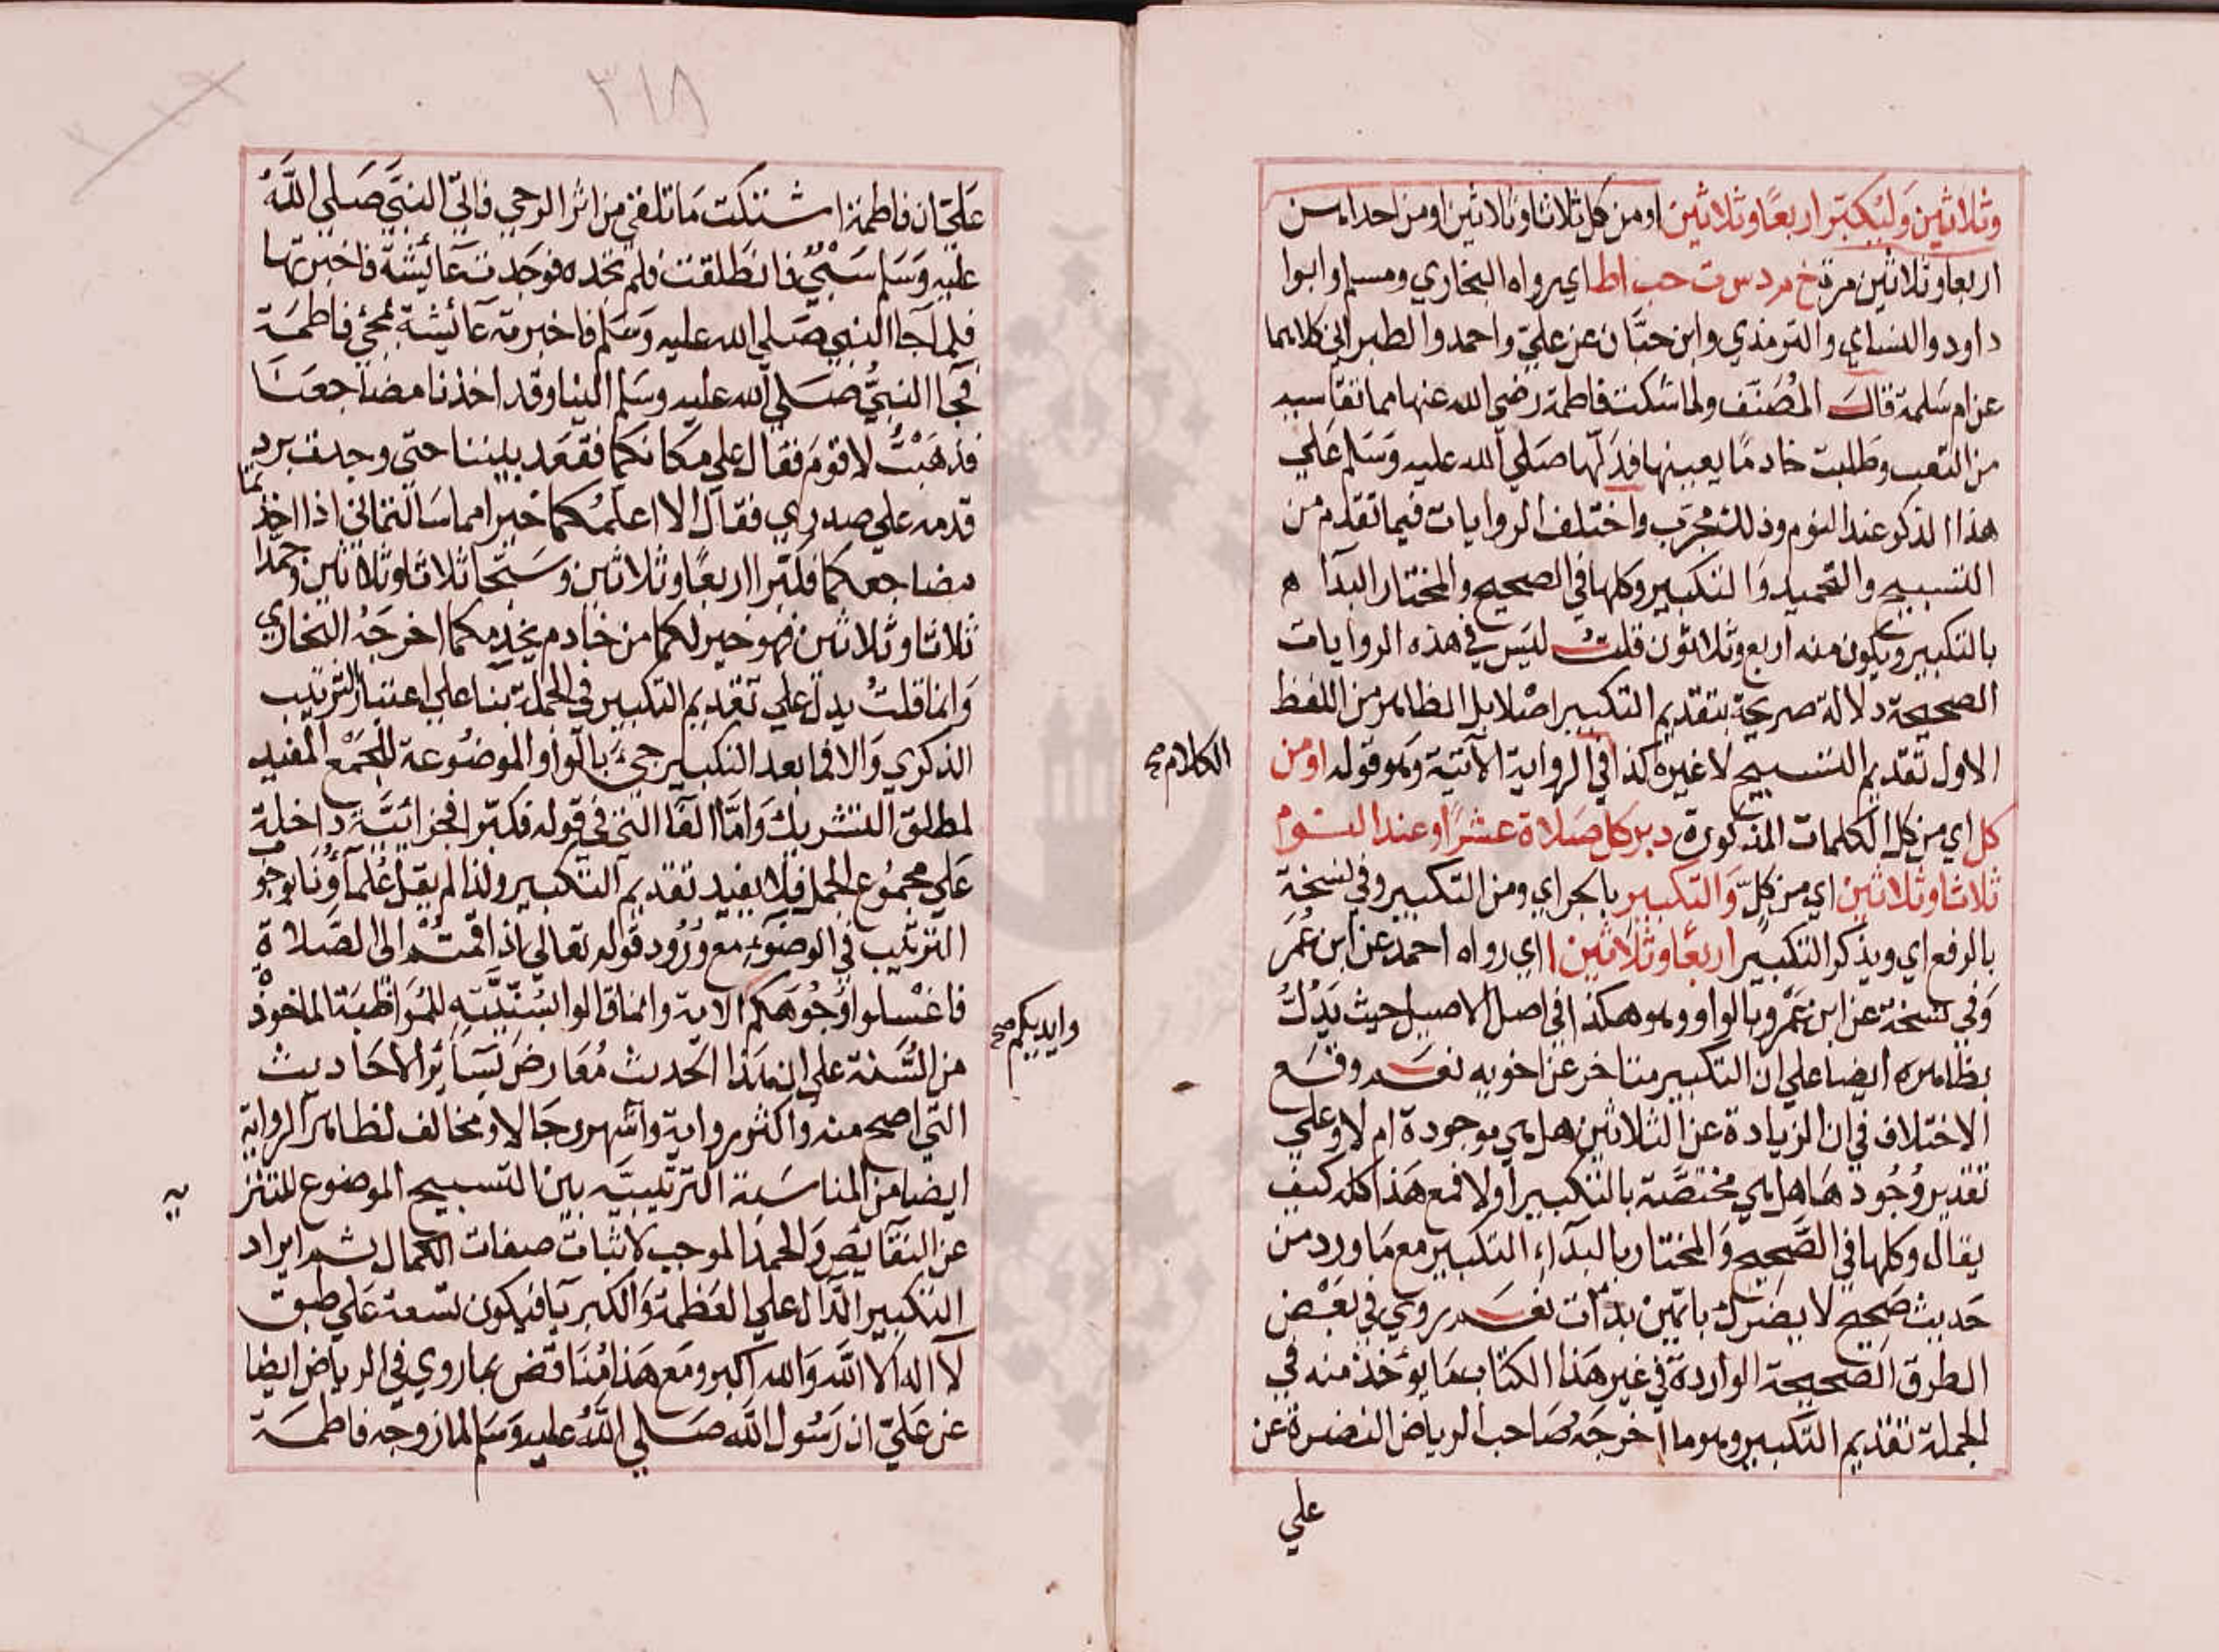 وثلاثين وليكبر اربعا وثلاثين او من كل ثلاثا وثلاثين او من احداهن
اربعا وثلاثين مرة خ م د س ت حب ا ط اي رواه البخاري ومسلم وابوا
داود والنساي والترمذي وابن حبان عن علي واحمد والطبراني كلاهما
عن ام سلمة قال المصنف ولما شكت فاطمة رضي الله عنها مما تقاسيه
من التعب وطلبت خادما يعينها فدلها صلي الله عليه وسلم علي
هذا الذكر عند النوم وذلك مجرب واختلف الروايات فيما تقدم من
التسبيح والتحميد والتكبير وكلها في الصحيح والمختار البداه
بالتكبير ويكون منه اربع وثلاثون قلت ليس في هذه الروايات
الصحيحة دلالة صريحة بتقديم التكبير اصلا بل الظاهر من اللفظ
الاول تقديم التسبيح لا غيره كذا في الرواية الاتية وهو قوله او من
الكلام صح
كل اي من كل الكلمات المذكورة دبر كل صلاة عشرا وعند النوم
ثلاثا وثلاثين اي من كل والتكبير بالجر اي ومن التكبير وفي نسخة
بالرفع اي ويذكر التكبير اربعا وثلاثين ا اي رواه احمد عن ابن عمر
وفي نسخة عن ابن عمرو بالواو وهو هكذا في اصل الاصيل حيث يدل
بظاهره ايضا علي ان التكبير متاخر عن اخويه نعم وقع
الاختلاف في ان الزيادة عن الثلاثين هل هي موجودة ام لا وعلي
تقدير وجودها هل هي مختصة بالتكبير اولا فمع هذا كله كيف
يقال وكلها في الصحيح والمختار بالبداء التكبير مع ما ورد من
حديث صحيح لا يضرك بايهن بدات نعم روي في بعض
الطرق الصحيحة الواردة في غير هذا الكتاب ما يؤخذ منه في
الجملة تقديم التكبير وهو ما اخرجه صاحب الرياض النضرة عن
علي
٣١٨
علي ان فاطمة اشتكت ما تلقي من اثر الرحي فاتي النبي صلي الله
عليه وسلم سبي فانطلقت فلم تجده فوجدت عائشة فاخبرتها
فلما جا النبي صلي الله عليه وسلم فاخبرته عائشة بمجي فاطمة
فجا النبي صلي الله عليه وسلم الينا وقد اخذنا مضاجعنا
فذهبت لاقوم فقال علي مكانكما فقعد بيننا حتي وجدت برد
قدمه علي صدري فقال الا اعلمكما خيرا مما سالتماني اذا اخذتما
مضاجعكما فكبرا اربعا وثلاثين وسبحا ثلاثا وثلاثين وحمدا
ثلاثا وثلاثين فهو خير لكما من خادم يخدمكما اخرجه البخاري
وانما قلت يدل علي تقديم التكبير في الجملة بنا علي اعتبار الترتيب
الذكري والا فما بعد التكبير جيء بالواو الموضوعة للجمع المفيد
لمطلق التشريك واما الفا التي في قوله فكبرا فجزائية داخلة
علي مجموع الجمل فلا يفيد تقديم التكبير ولذا لم يقل علماؤنا بوجوب
الترتيب في الوضوء مع ورود قوله تعالي اذا قمتم الي الصلاة
فاغسلوا وجوهكم الاية وانما قالوا بسنيته للمواظبة الماخوذة
وايديكم صح
من السنة علي ان هذا الحديث معارض بسائر الاحاديث
التي اصح منه واكثر رواية واشهر رجالا ومخالف لظاهر الرواية
ايضا من المناسبة الترتيبية بين التسبيح الموضوع للتنزيه
عن النقائص والحمد الموجب لاثبات صفات الكمال ثم ايراد
التكبير الدال علي العظمة والكبريا فيكون تسعة علي طبق
لا اله الا الله والله اكبر ومع هذا مناقض بما روي في الرياض ايضا
عن علي ان رسول الله صلي الله عليه وسلم لما زوجه فاطمة